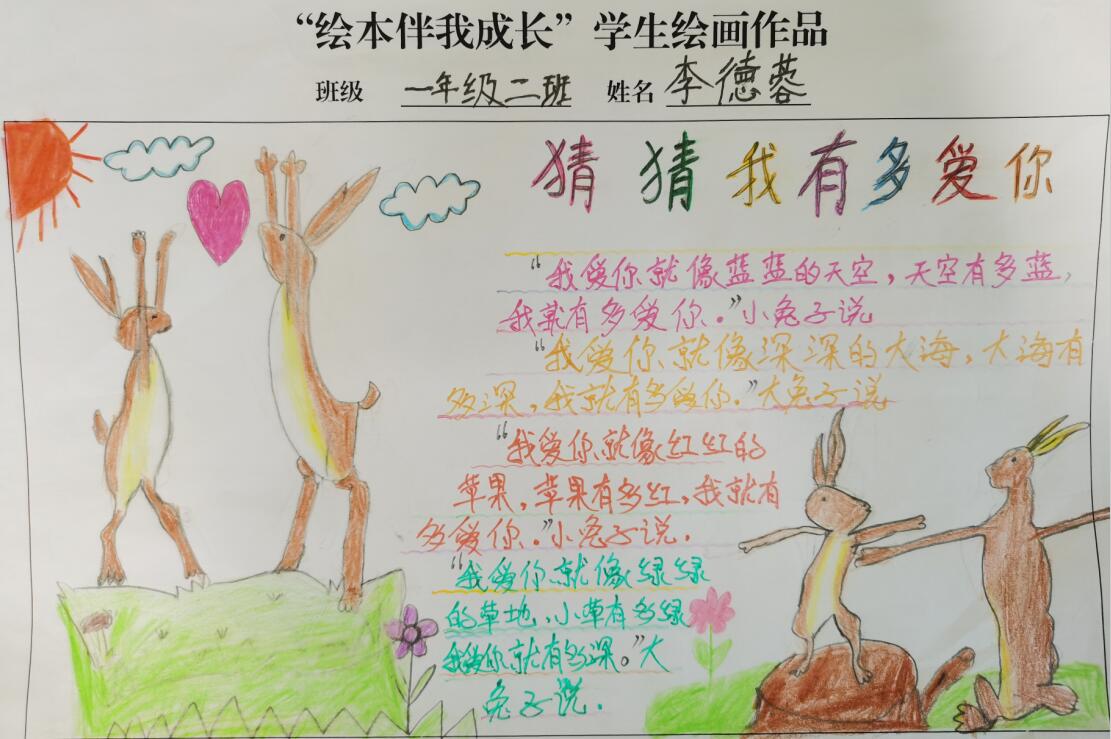 “绘本伴我成长”学生绘画作品
班级 一年级二班 姓名 李德蓉
猜猜我有多爱你
“我爱你就像蓝蓝的天空，天空有多蓝，
我就有多爱你。”小兔子说
“我爱你就像深深的大海，大海有
多深，我就有多爱你。”大兔子说
“我爱你就像红红的
苹果，苹果有多红，我就有
多爱你。”小兔子说.
“我爱你就像绿绿
的草地、小草有多绿
我爱你就有多深。”大
兔子说.